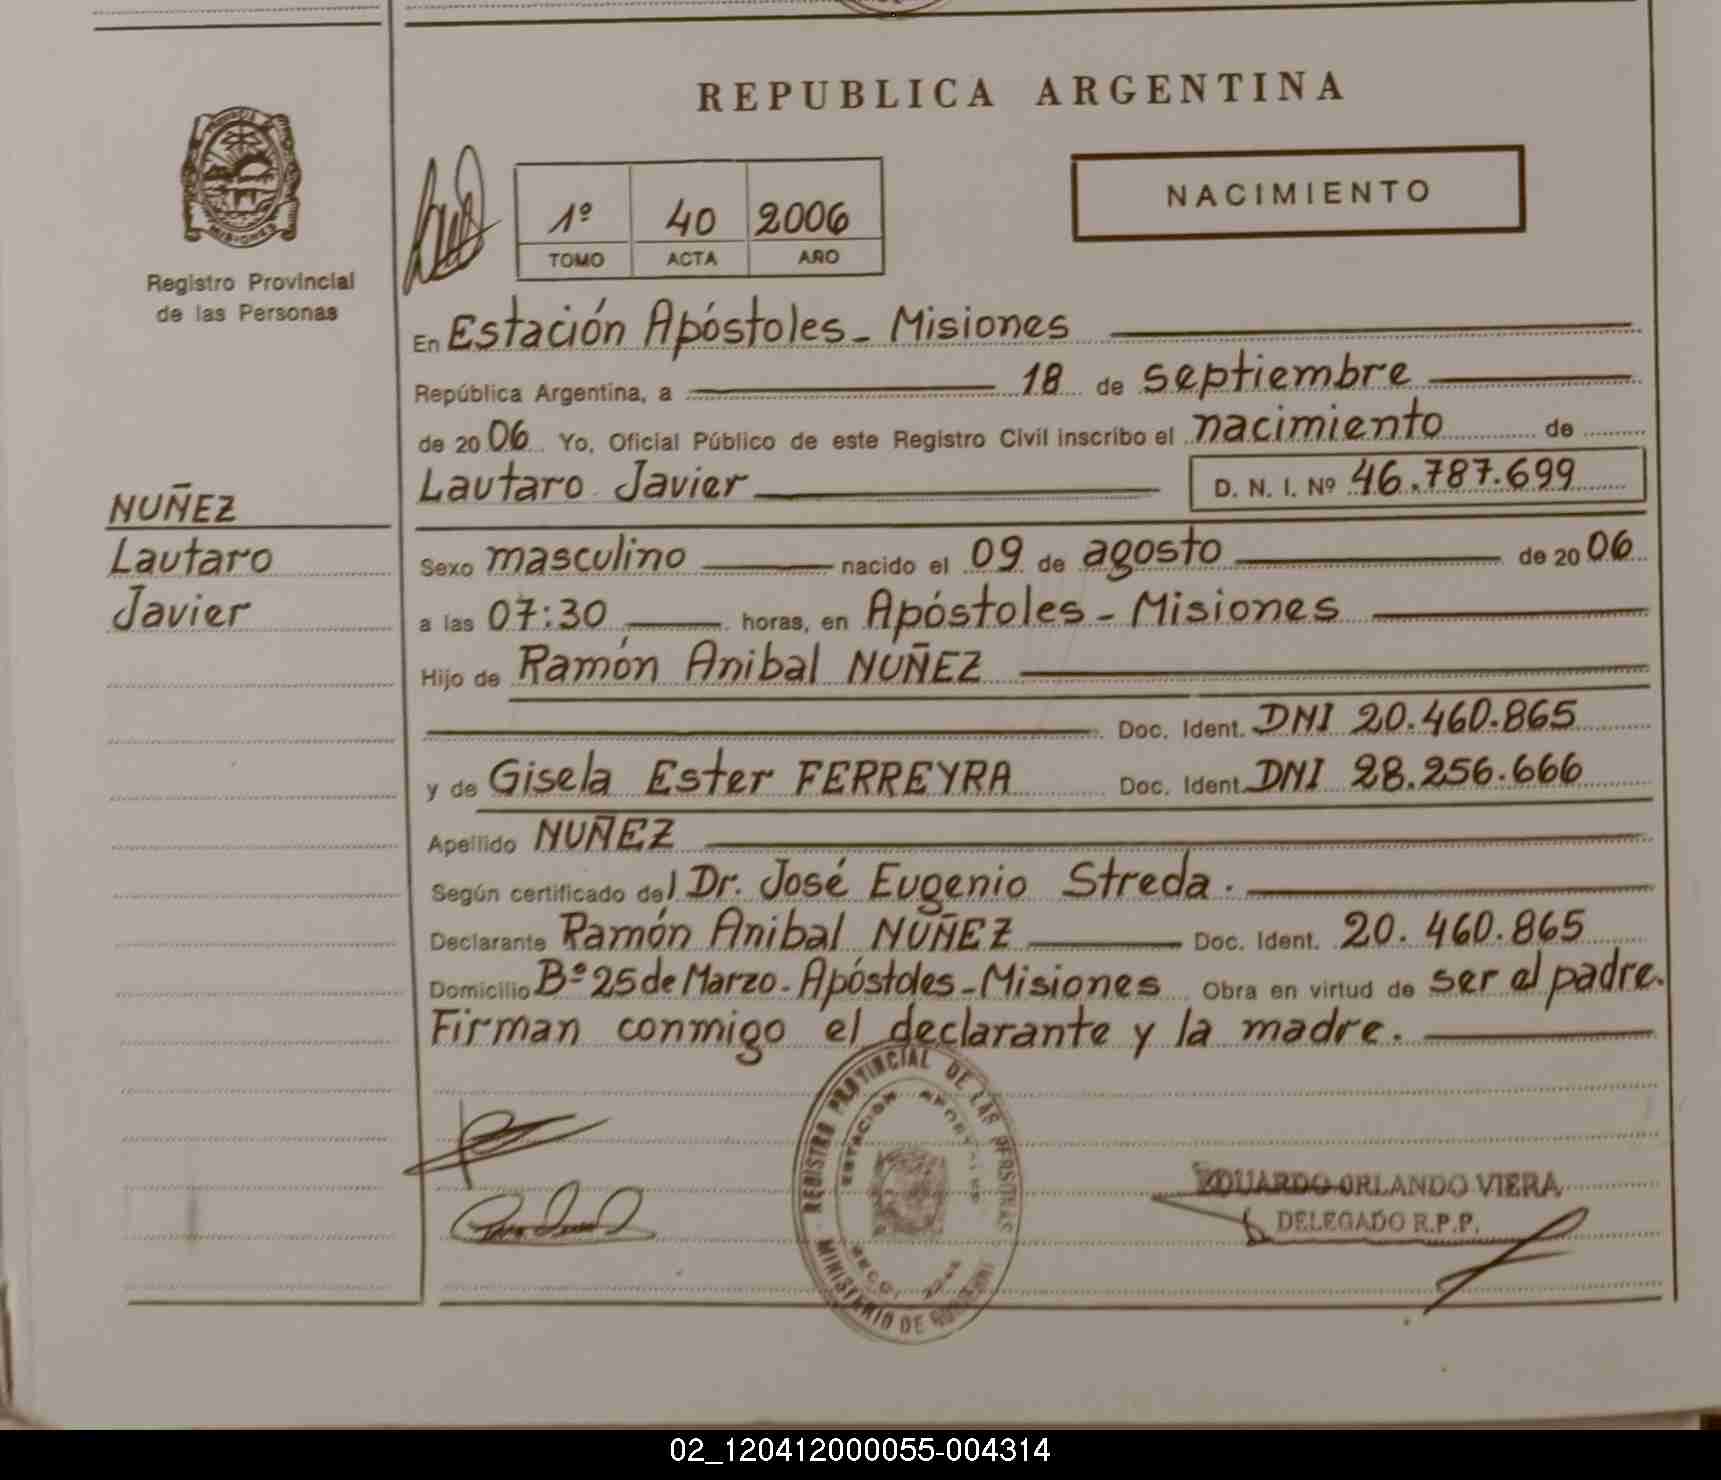 REPUBLICA ARGENTINA
NACIMIENTO
1º 40 2006
TOMO ACTA AÑO
Registro Provincial
de las Personas
MISIONES
NUÑEZ
Lautaro
Javier
En Estación Apóstoles - Misiones
República Argentina, a 18 de septiembre
de 2006 Yo, Oficial Público de este Registro Civil inscribo el nacimiento de
Lautaro Javier D. N. I. Nº 46.787.699
Sexo masculino nacido el 09 de agosto de 2006
a las 07:30 horas, en Apóstoles - Misiones
Hijo de Ramón Anibal NUÑEZ
Doc. Ident. DNI 20.460.865
y de Gisela Ester FERREYRA Doc. Ident. DNI 28.256.666
Apellido NUÑEZ
Según certificado del Dr. José Eugenio Streda.
Declarante Ramón Anibal NUÑEZ Doc. Ident. 20.460.865
Domicilio Bº 25 de Marzo - Apóstoles - Misiones Obra en virtud de ser el padre.
Firman conmigo el declarante y la madre.
REGISTRO PROVINCIAL DE LAS PERSONAS
ESTACION APOSTOLES
MINISTERIO DE GOBIERNO
EDUARDO ORLANDO VIERA
DELEGADO R.P.P.
02_120412000055-004314